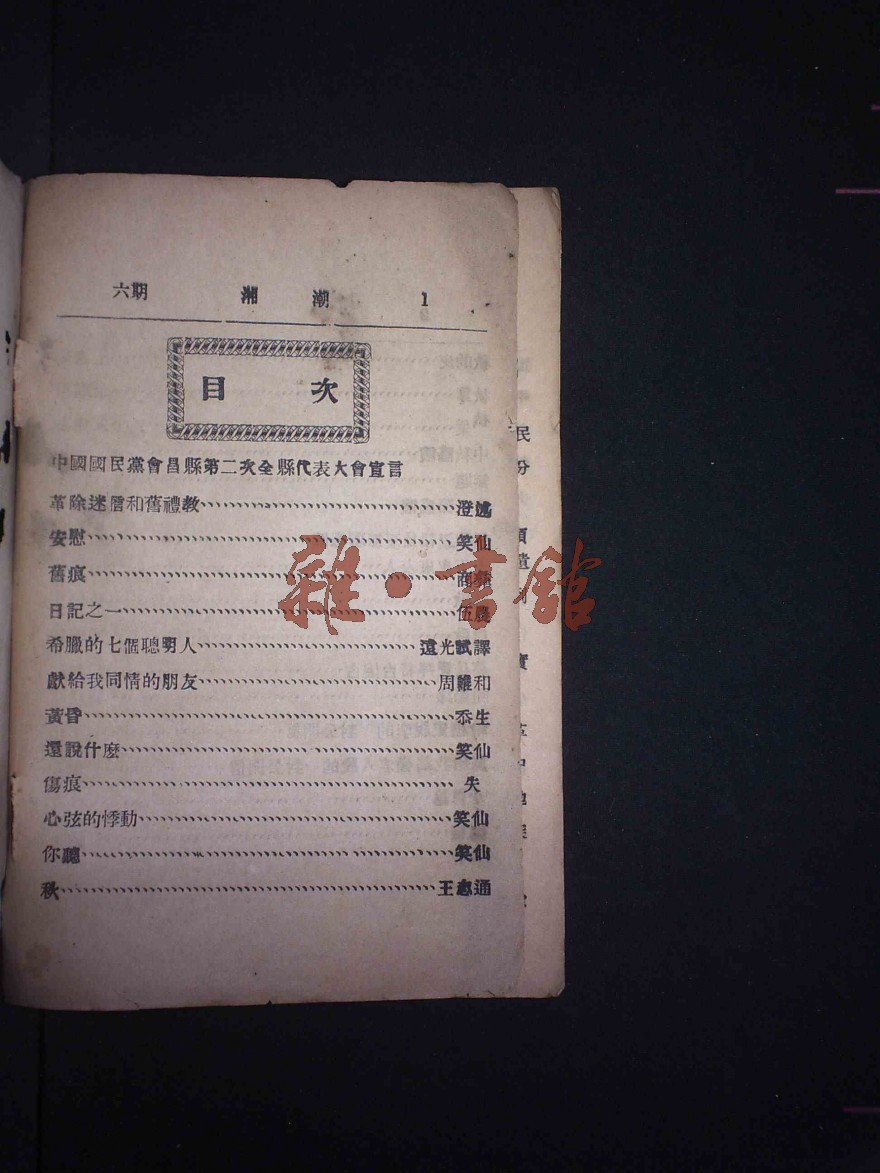 六期 湘潮 1
目次
中國國民黨會昌縣第二次全縣代表大會宣言
革除迷信和舊禮教 澄述
安慰 笑仙
舊痕
日記之一 伍農
希臘的七個聰明人 遠光試譯
獻給我同情的朋友 周維和
黃昏 忝生
還說什麼 笑仙
傷痕 失
心弦的悸動 笑仙
你聽 笑仙
秋 王志通
雜·書館